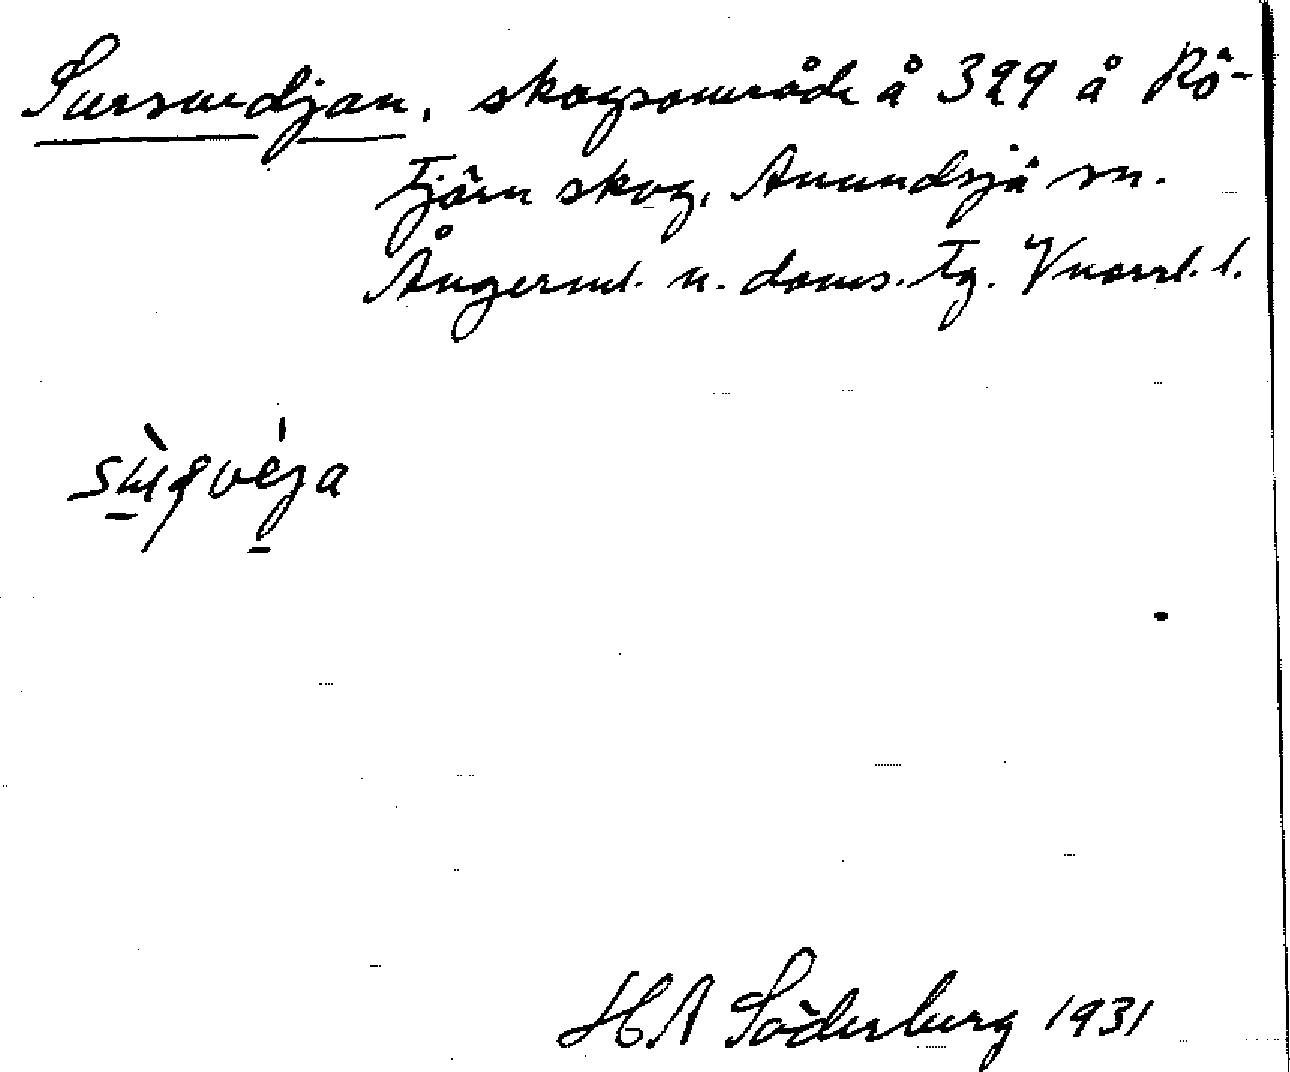 Sursvedjan, skogsområde å 399 å Rö-
tjärn skog, Anundsjö sn.
Ångerml. n. doms. tg. Vnorrl. l.
H A Söderberg 1931